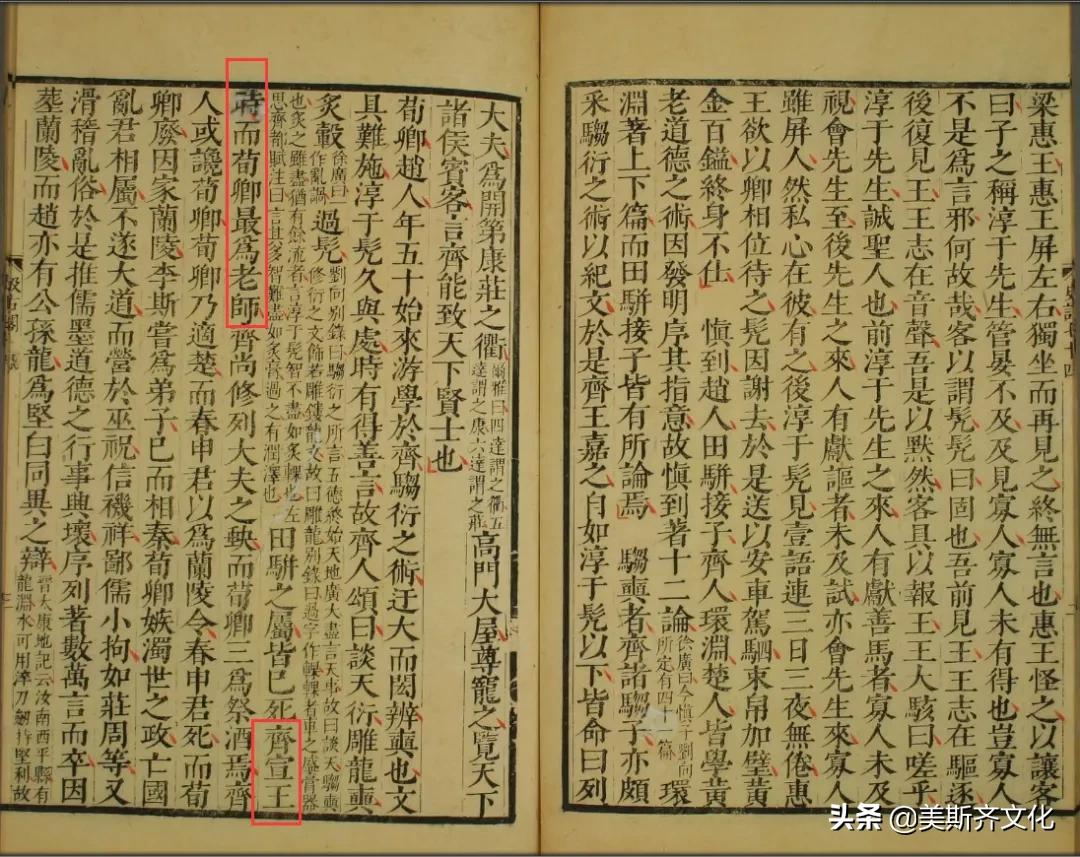 梁惠王惠王屏左右獨坐而再見之終無言也惠王怪之以讓客
曰子之稱淳于先生管晏不及及見寡人寡人未有得也豈寡人
不足爲言邪何故哉客以謂髡髡曰固也吾前見王王志在驅逐
後復見王王志在音聲吾是以默然客具以報王王大駭曰嗟乎
淳于先生誠聖人也前淳于先生之來人有獻善馬者寡人未及
視會先生至後先生之來人有獻謳者未及試亦會先生來寡人
雖屏人然私心在彼有之後淳于髡見壹語連三日三夜無倦惠
王欲以卿相位待之髡因謝去於是送以安車駕駟束帛加璧黃
金百鎰終身不仕 慎到趙人田駢接子齊人環淵楚人皆學黃
老道德之術因發明序其指意故慎到著十二論徐廣曰今慎子劉向所定有四一篇環
淵著上下篇而田駢接子皆有所論焉 騶奭者齊諸騶子亦頗
采騶衍之術以紀文於是齊王嘉之自如淳于髡以下皆命曰列
大夫爲開第康莊之衢爾雅曰四達謂之衢五達謂之康六達謂之莊高門大屋尊寵之覽天下
諸侯賓客言齊能致天下賢士也
荀卿趙人年五十始來游學於齊騶衍之術迂大而閎辨奭也文
具難施淳于髡久與處時有得善言故齊人頌曰談天衍雕龍奭
炙轂徐廣曰一作亂調過髡劉向別錄曰騶衍之所言五德終始天地廣大盡言天事故曰談天騶奭修衍之文飾若雕鏤龍文故曰雕龍別錄曰過字作輠輠者車之盛膏器
也炙之雖盡猶有餘流者言淳于髡智不盡如炙輠也左思齊都賦注曰言其多智難盡如炙膏過之有潤澤也田駢之屬皆已死齊宣王
時而荀卿最爲老師齊尚修列大夫之缺而荀卿三爲祭酒焉齊
人或讒荀卿荀卿乃適楚而春申君以爲蘭陵令春申君死而荀
卿廢因家蘭陵李斯嘗爲弟子已而相秦荀卿嫉濁世之政亡國
亂君相屬不遂大道而營於巫祝信禨祥鄙儒小拘如莊周等又
滑稽亂俗於是推儒墨道德之行事興壞序列著數萬言而卒因
葬蘭陵而趙亦有公孫龍爲堅白同異之辯晉太康地記云汝南西平縣有龍淵水可用淬刀劒特堅利故
头条 @美斯齐文化